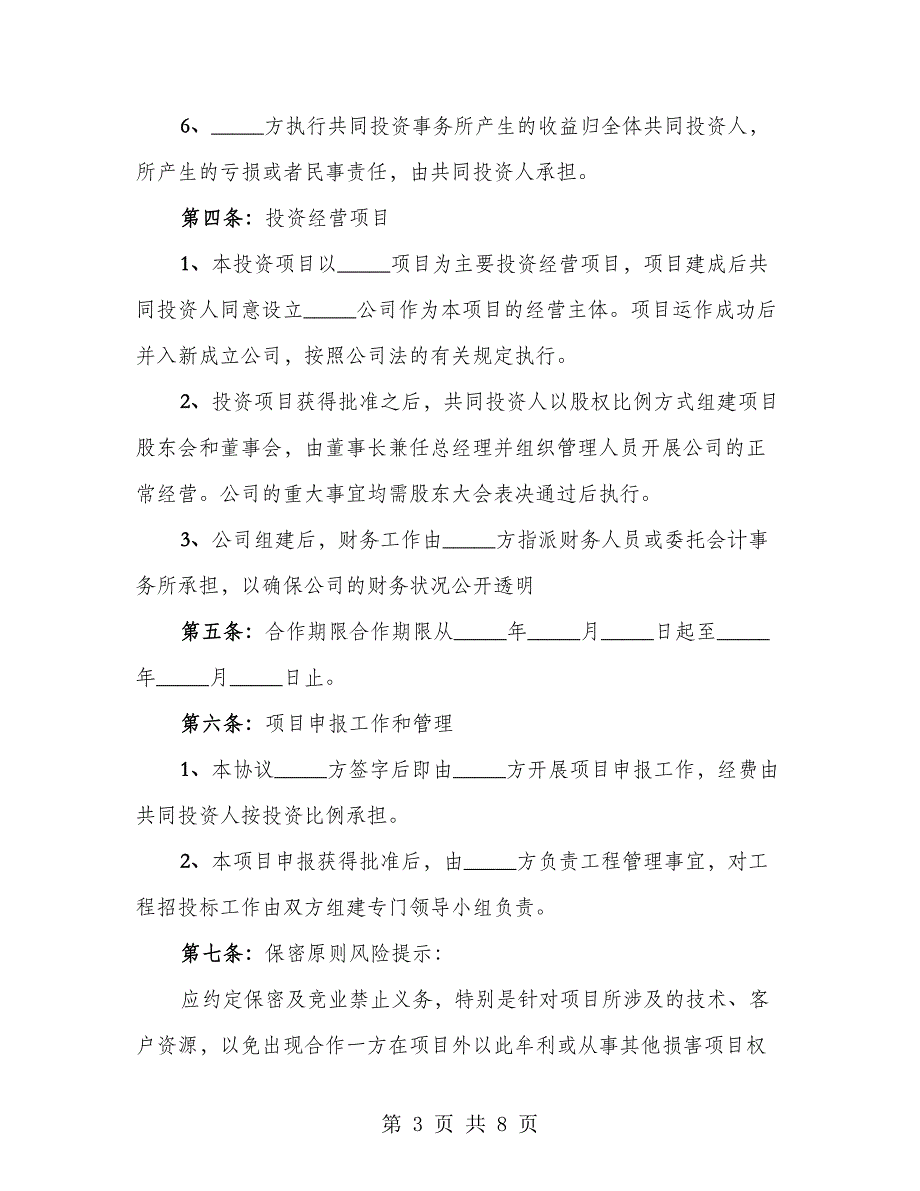 6、_____方执行共同投资事务所产生的收益归全体共同投资人，
所产生的亏损或者民事责任，由共同投资人承担。
第四条：投资经营项目
1、本投资项目以_____项目为主要投资经营项目，项目建成后共
同投资人同意设立_____公司作为本项目的经营主体。项目运作成功后
并入新成立公司，按照公司法的有关规定执行。
2、投资项目获得批准之后，共同投资人以股权比例方式组建项目
股东会和董事会，由董事长兼任总经理并组织管理人员开展公司的正
常经营。公司的重大事宜均需股东大会表决通过后执行。
3、公司组建后，财务工作由_____方指派财务人员或委托会计事
务所承担，以确保公司的财务状况公开透明
第五条：合作期限合作期限从_____年_____月_____日起至_____
年_____月_____日止。
第六条：项目申报工作和管理
1、本协议_____方签字后即由_____方开展项目申报工作，经费由
共同投资人按投资比例承担。
2、本项目申报获得批准后，由_____方负责工程管理事宜，对工
程招投标工作由双方组建专门领导小组负责。
第七条：保密原则风险提示：
应约定保密及竞业禁止义务，特别是针对项目所涉及的技术、客
户资源，以免出现合作一方在项目外以此牟利或从事其他损害项目权
第 3 页 共 8 页